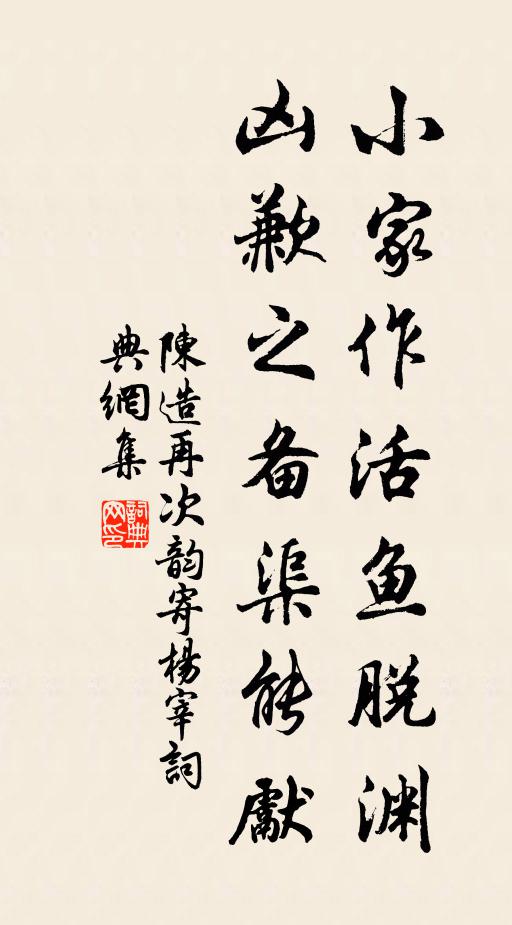 小家作活鱼脱渊
凶歉之备渠能獻
陳造再次韵寄楊宰詞
典網集
詞典網印